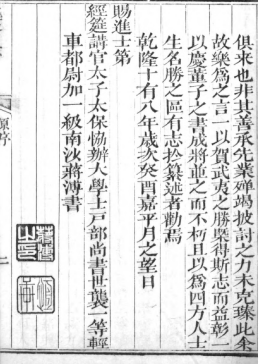 俱來也非其善承先業殫竭披討之力未克臻此余
故樂為之言一以賀武夷之勝槩得斯志而益彰一
以慶董子之書成將垂之而不朽且以為四方人士
生名勝之區有志於纂述者勸焉
乾隆十有八年歲次癸酉嘉平月之望日
賜進士第
經筵講官太子太保協辦大學士戶部尚書世襲一等輕
車都尉加一級南沙蔣溥書
原序